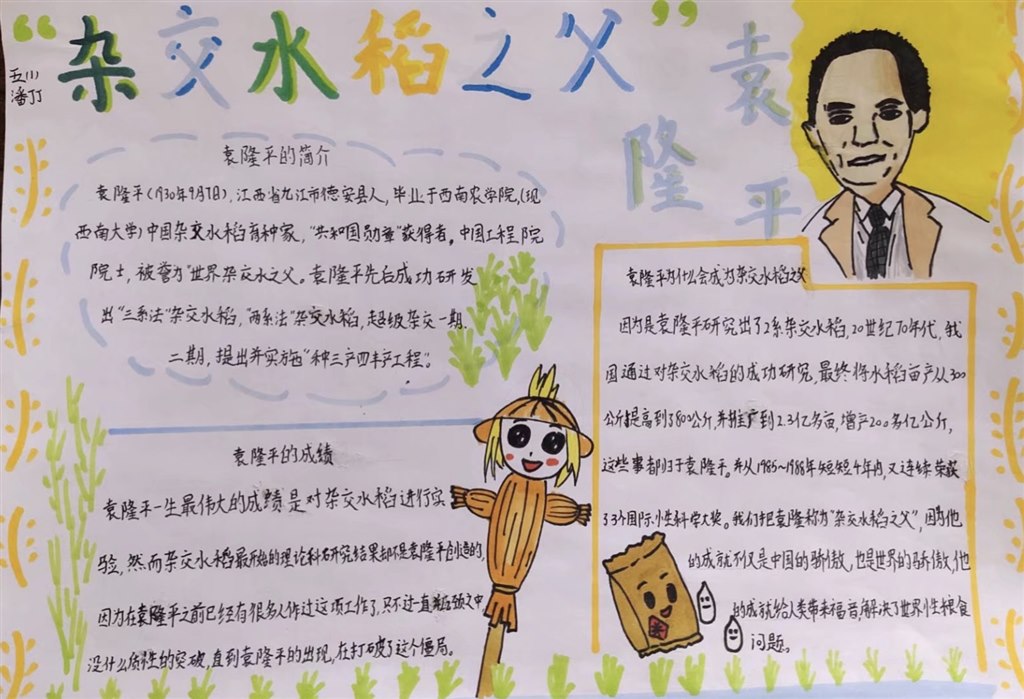 “杂交水稻之父”
袁隆平
五川
潘丁
袁隆平的简介
袁隆平(1930年9月7日),江西省九江市德安县人,毕业于西南农学院,(现
西南大学)中国杂交水稻育种家,“共和国勋章”获得者。中国工程院
院士,被誉为“世界杂交水之父。袁隆平先后成功研发
出“三系法”杂交水稻,“两系法”杂交水稻,超级杂交一期.
二期,提出并实施“种三产四丰产工程”。
袁隆平的成绩
袁隆平一生最伟大的成绩是对杂交水稻进行实
验,然而杂交水稻最开始的理论科研研究结果却不是袁隆平创造的,
因为在袁隆平之前已经有很多人作过这项工作了,只不过一直之中
没什么质性的突破,直到袁隆平的出现,在打破了这个僵局。
袁隆平为什么会成为杂交水稻之父
因为是袁隆平研究出了2系杂交水稻,20世纪70年代,我
国通过对杂交水稻的成功研究,最终将水稻亩产从300
公斤提高到了800公斤,并推广到2.3亿多亩,增产200多亿公斤,
这些事都归于袁隆平。并从1985~1988年短短4年内,又连续荣获
了3个国际性科学大奖。我们把袁隆称为“杂交水稻之父”,因为他
的成就不仅是中国的骄傲,也是世界的骄傲,他
的成就给人类带来福音,解决了世界性粮食
问题。